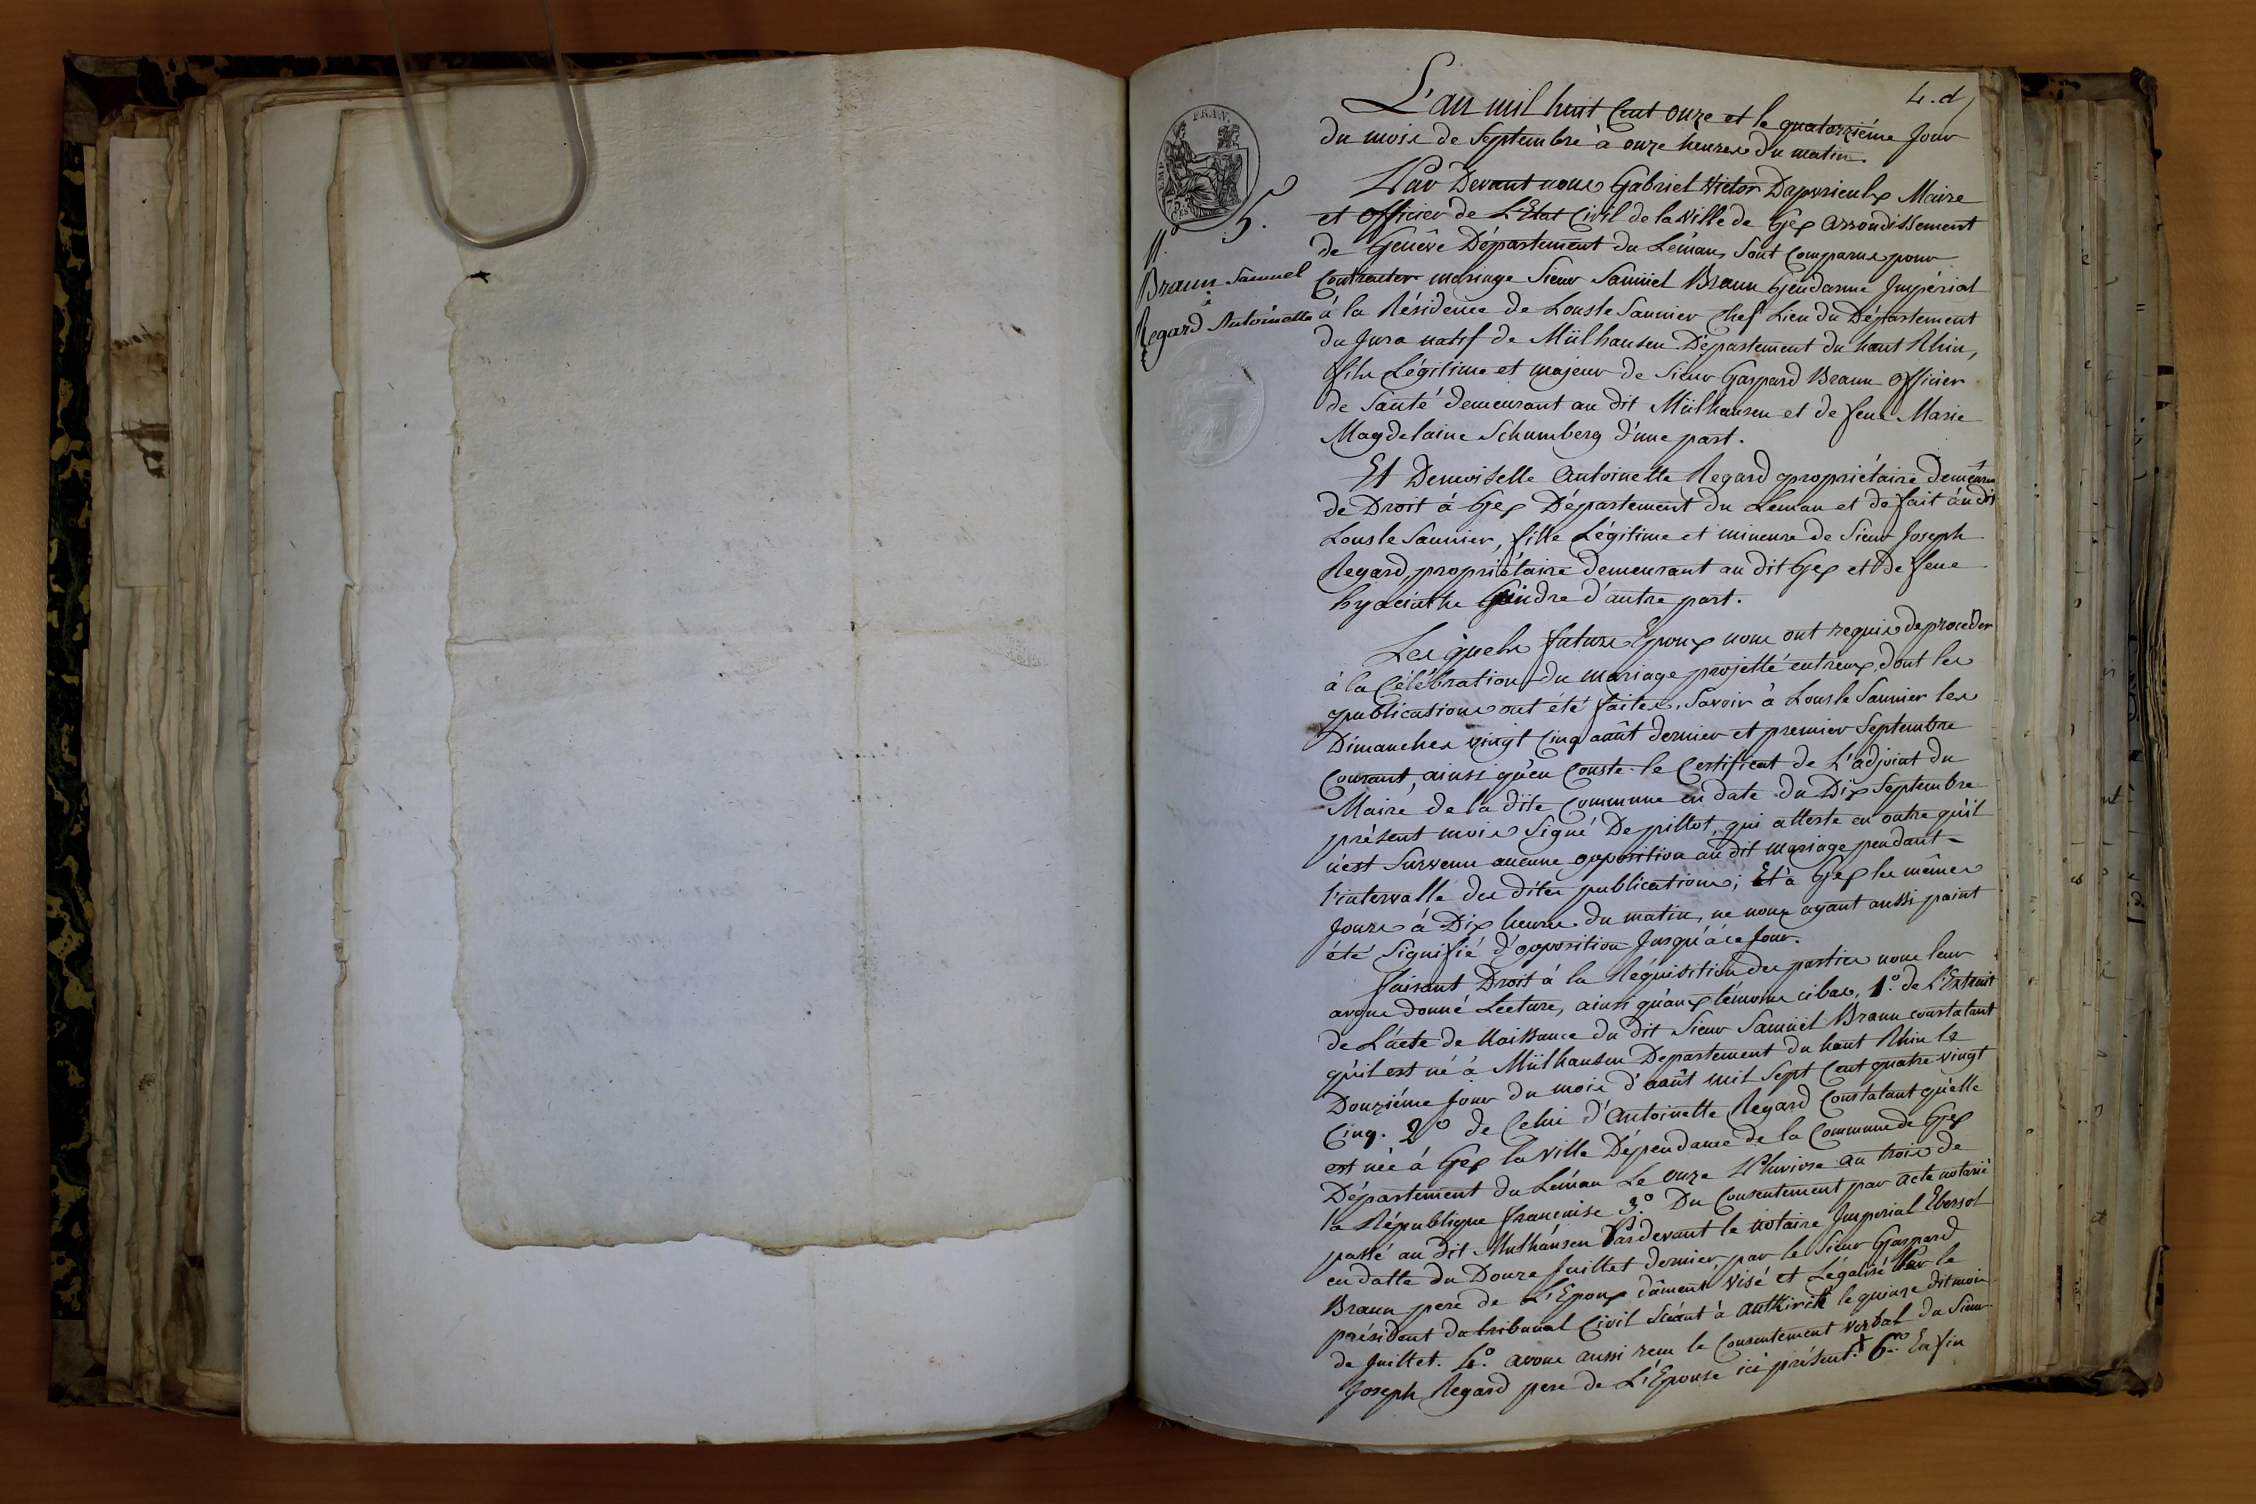 4. d
L'an mil huit Cent onze et le quatorzième Jour
du mois de Septembre à onze heures du matin.
Par Devant nous Gabriel Victor Maire
et officier de L'Etat Civil de la Ville de Gex arrondissement
de Genêve Département du Léman, Sont Comparus pour
Contracter mariage Sieur Samüel Braun Gendarme Impérial
à la Résidence de Lonsle Saunier Chef Lieu du Département
du Jura natif de Mülhausen Département du haut Rhin,
fils Légitime et majeur de Sieur Gaspard Braun officier
de Santé demeurant au dit Mülhausen et de feue Marie
Magdelaine Schumberg d'une part.
Et Demoiselle Antoinette Regard propriétaire demeurt
de Droit à Gex Département du Leman et de fait au dit
Lonsle Saunier, fille Légitime et mineure de Sieur Joseph
Regard, propriétaire demeurant au dit Gex et de feue
hyacinthe Gindre d'autre part.
Les quels futurs Epoux nous ont requis de procéder
à la Célébration du mariage projetté entreux, dont les
publications ont été faites, Savoir à Lonsle Saunier les
Dimanches vingt Cinq août dernier et premier Septembre
Courant, ainsi qu'en Conste le Certificat de L'adjoint du
Maire de la dite Commune en date du Dix Septembre
présent mois Signé Depillot, qui atteste en outre qu'il
n'est Survenu aucune opposition au dit mariage pendant
l'intervalle des dites publications; Et à Gex les mêmes
Jours à Dix heures du matin, ne nous ayant aussi point
été Signifié d'opposition Jusqu'à ce Jour.
faisant Droit à la Réquisition des parties nous leur
avons donné Lecture, ainsi qu'aux témoins cibas, 1.° de L'Extrait
de L'acte de Naissance du dit Sieur Samüel Braun constatant
qu'il est né à Mülhausen Departement du haut Rhin le
Douzième Jour du mois d'août mil Sept Cent quatre vingt
Cinq. 2° de Celui d'Antoinette Regard Constatant qu'elle
est née à Gex la ville Dépendance de la Commune de Gex
Département du Léman Le onze Pluviose an trois de
la République francaise 3.° Du Consentement par acte notarié
passé au dit Mulhausen Pardevant le notaire Impérial Ebersol
en datte du Douze Juillet dernier, par le Sieur Gaspard
Braun pere de L'Epoux dûment visé et Légalisé Par le
président du tribunal Civil Séant à Altkirch le quinze dit mois
de Juillet. 4.° avons aussi recu le Consentement verbal du Sieur
Joseph Regard pere de L'Epouse ici présent. + Enfin
N.° 5.
Braun Samuel
&
Regard Antoinette
EMP. FRAN.
75 Cs